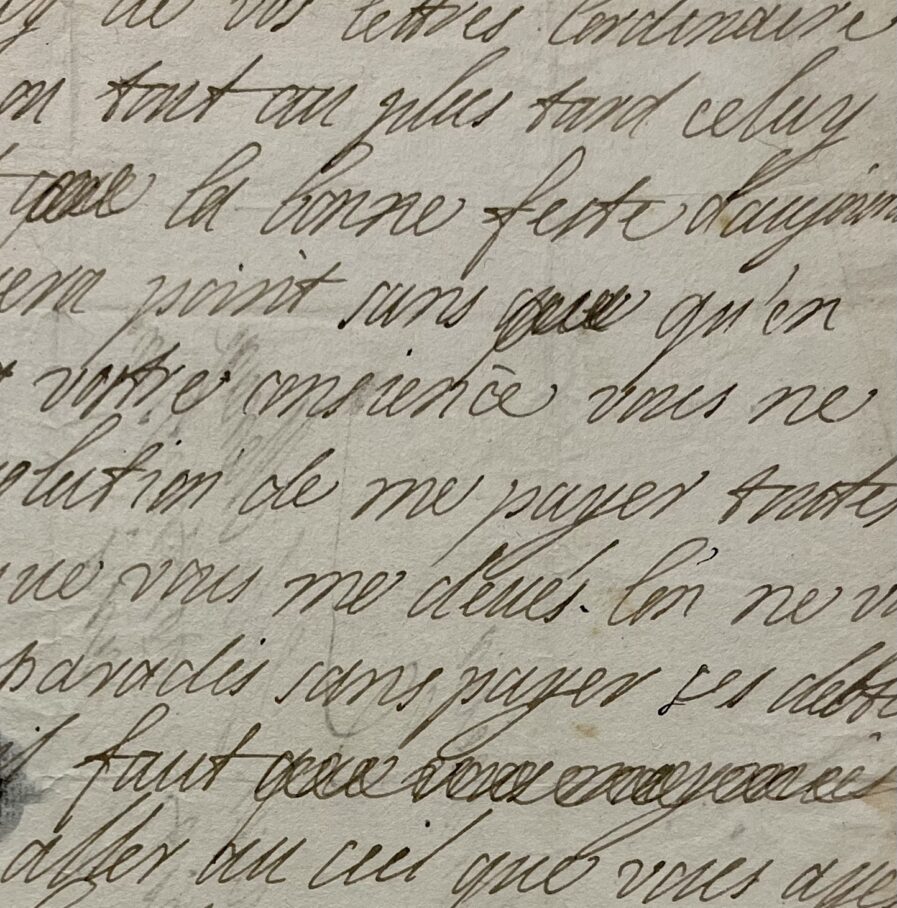 de vos lettres lordinaire
on tout au plus tard celuy
la bonne feste daujour
era point sans qu'en
vostre consience vous ne
olution de me payer toutes
ue vous me devés. lon ne v
paradis sans payer ses debte
il faut
aller au ciel que vous aye